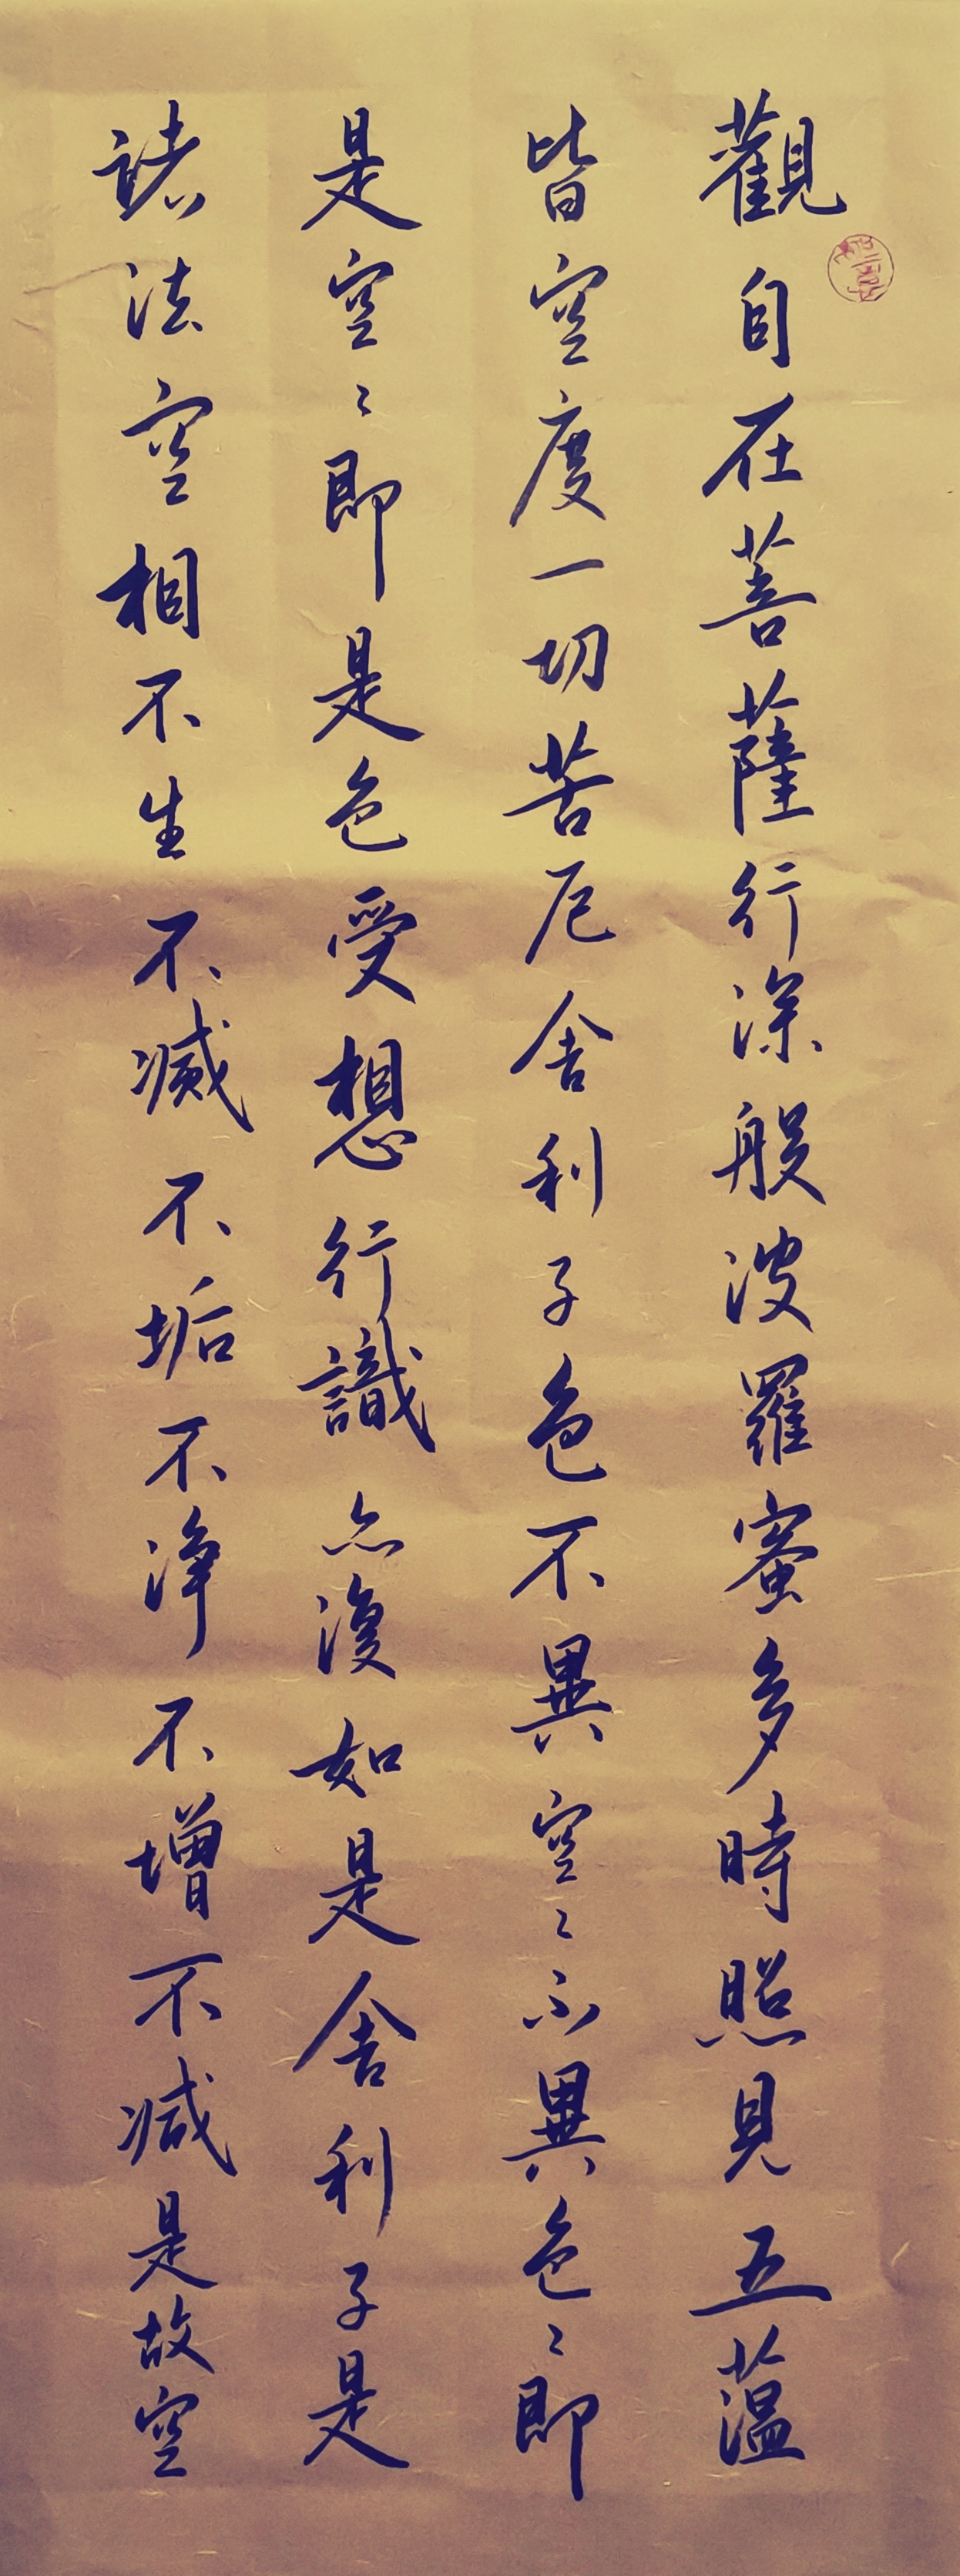 觀自在菩薩行深般波羅蜜多時照見五蕰
皆空度一切苦厄舍利子色不異空〻不異色〻即
是空〻即是色受想行識亦復如是舍利子是
諸法空相不生不滅不垢不淨不增不減是故空